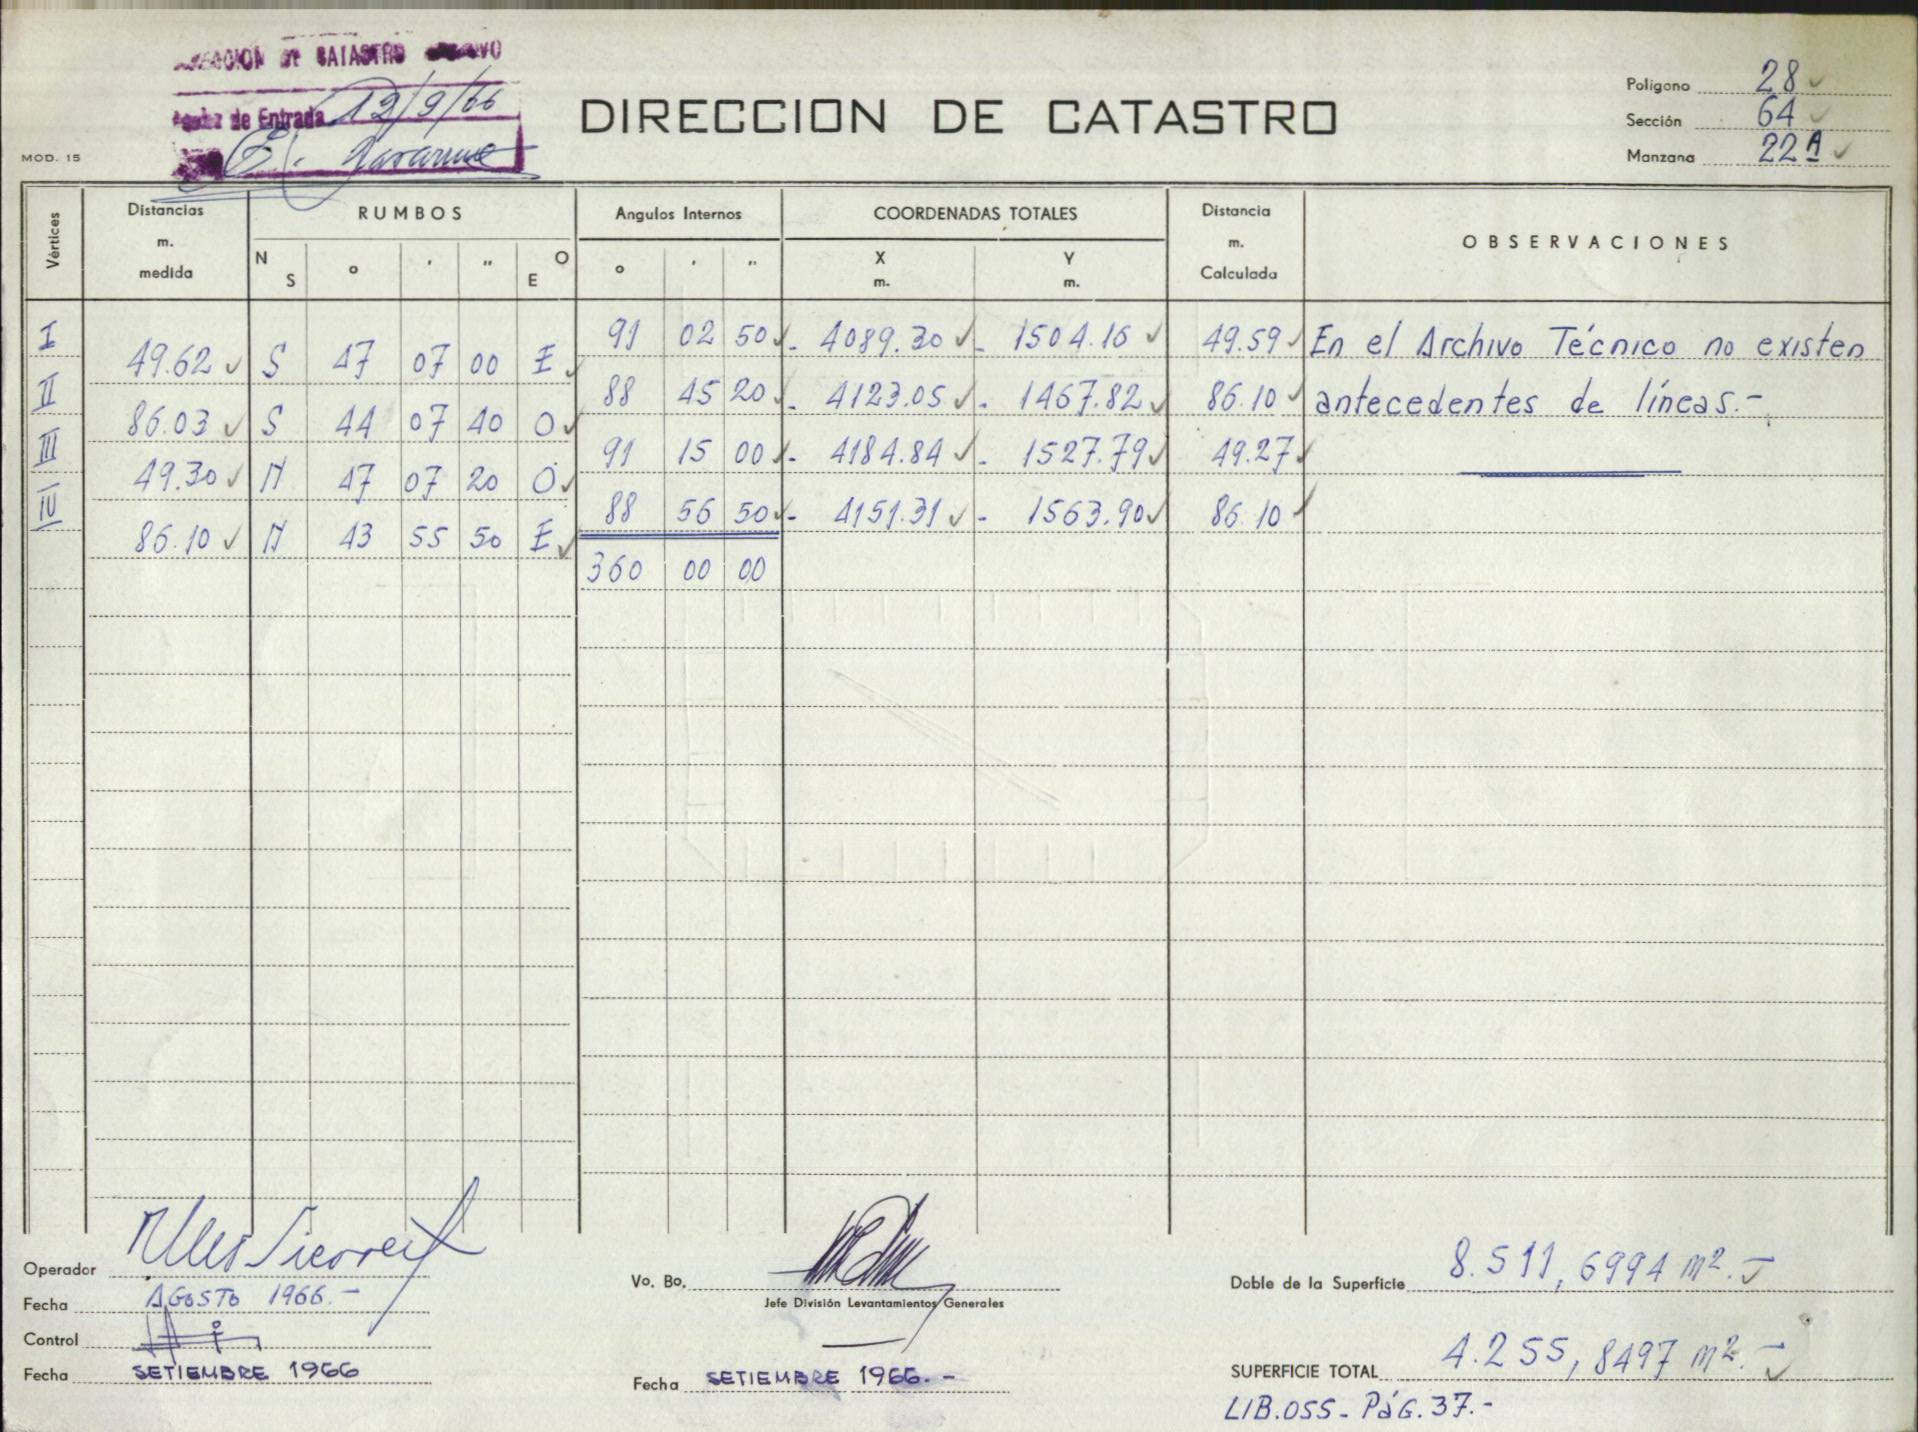 DE CATASTRO
de Entrada 12/9/66
DIRECCION DE CATASTRO
Polígono 28
Sección 64
Manzana 22 A
MOD. 15
Vértices
Distancias m. medida
RUMBOS
N S o ' " O E
Angulos Internos
o ' "
COORDENADAS TOTALES
X m. Y m.
Distancia m. Calculada
OBSERVACIONES
I 91 02 50 - 4089.30 - 1504.16 49.59 En el Archivo Técnico no existen
49.62 S 47 07 00 E
II 88 45 20 - 4123.05 - 1467.82 86.10 antecedentes de líneas.-
86.03 S 44 07 40 O
III 91 15 00 - 4184.84 - 1527.79 49.27
49.30 N 47 07 20 O
IV 88 56 50 - 4151.31 - 1563.90 86.10
86.10 N 43 55 50 E
360 00 00
Operador
Fecha AGOSTO 1966.-
Control
Fecha SETIEMBRE 1966
Vo. Bo.
Jefe División Levantamientos Generales
Fecha SETIEMBRE 1966.-
Doble de la Superficie 8.511,6994 m².-
SUPERFICIE TOTAL 4.255,8497 m².-
LIB.OSS- PÁG.37.-